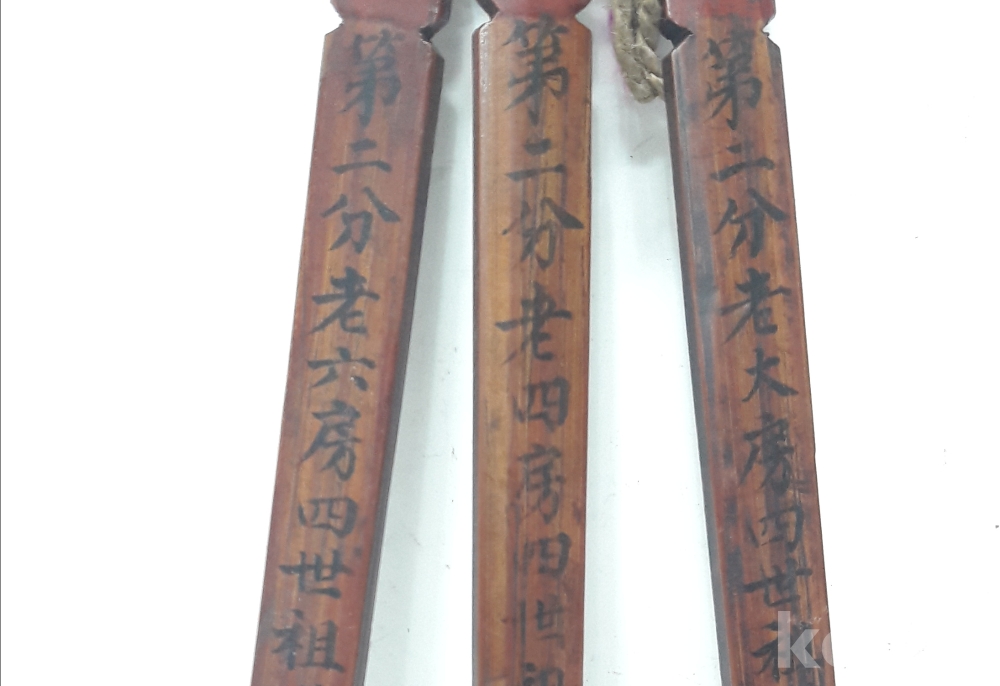 第二分老大房四世祖
第二分老四房四世祖
第二分老六房四世祖